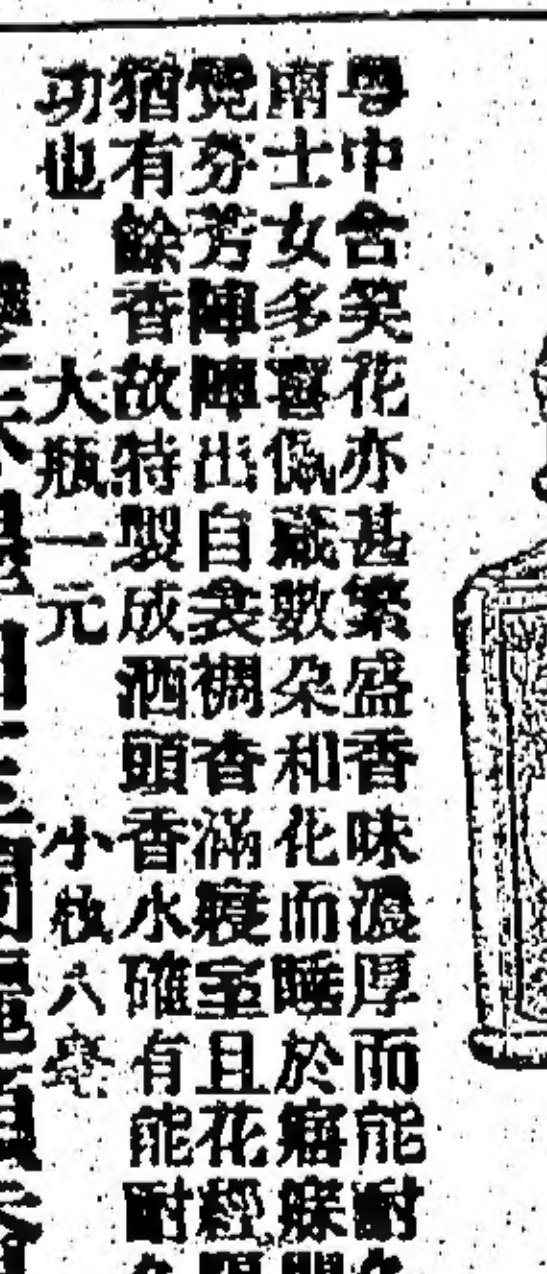 粵中含笑花亦甚繁盛香味濃厚而能耐久
南士女多喜佩藏數朵和花而睡於寤寐間
覺芬芳陣陣出自衾裯香滿寢室且花經隔
猶有餘香故特製成洒頭香水確有能耐久
功也 大瓶一元 小枝八毫